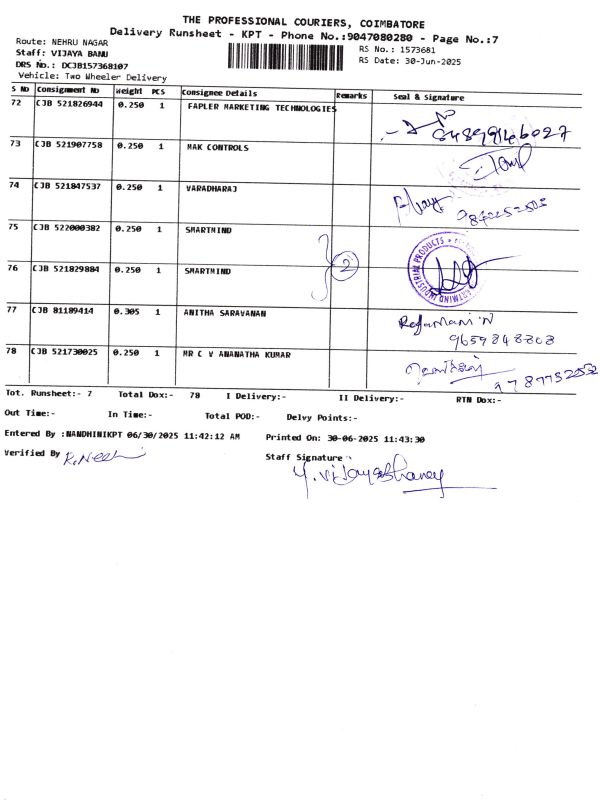 THE PROFESSIONAL COURIERS, COIMBATORE
Delivery Runsheet - KPT - Phone No.:9047080280 - Page No.:7
Route: NEHRU NAGAR
RS No.: 1573681
Staff: VIJAYA BANU
RS Date: 30-Jun-2025
DRS No.: DCJB157368107
Vehicle: Two Wheeler Delivery
S No Consignment No Weight PCS Consignee Details Remarks Seal & Signature
72 CJB 521826944 0.250 1 FAPLER MARKETING TECHNOLOGIES
73 CJB 521907758 0.250 1 MAK CONTROLS
74 CJB 521847537 0.250 1 VARADHARAJ
75 CJB 522000382 0.250 1 SMARTMIND
76 CJB 521829884 0.250 1 SMARTMIND 2
77 CJB 81189414 0.305 1 ANITHA SARAVANAN
9659848808
78 CJB 521730025 0.250 1 MR C V ANANATHA KUMAR
Tot. Runsheet:- 7 Total Dox:- 78 I Delivery:- II Delivery:- RTN Dox:-
Out Time:- In Time:- Total POD:- Delvy Points:-
Entered By :NANDHINIKPT 06/30/2025 11:42:12 AM Printed On: 30-06-2025 11:43:30
Verified By
Staff Signature